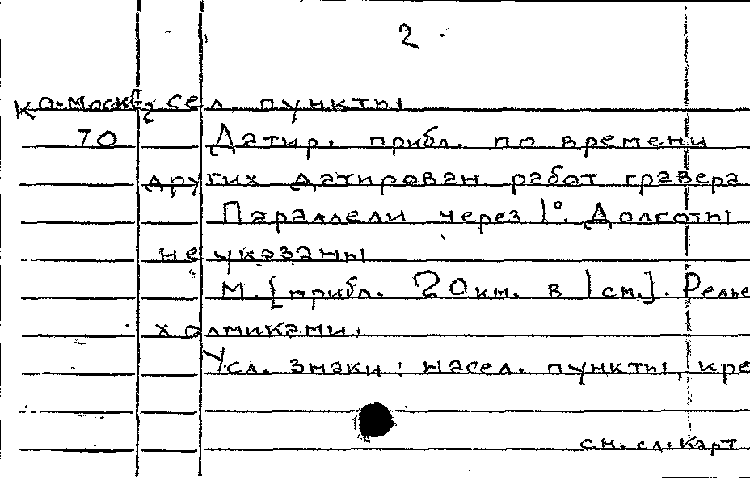 2
Ко-Москв. сел. пункты
70 Датир. прибл. по времени
других датирован работ гравера
Параллели через 1°. Долготы
не указаны
М. [прибл. 20 км. в 1 см.]. Релье
холмиками.
Усл. знаки: насел. пункты, кре
см. сл. карт